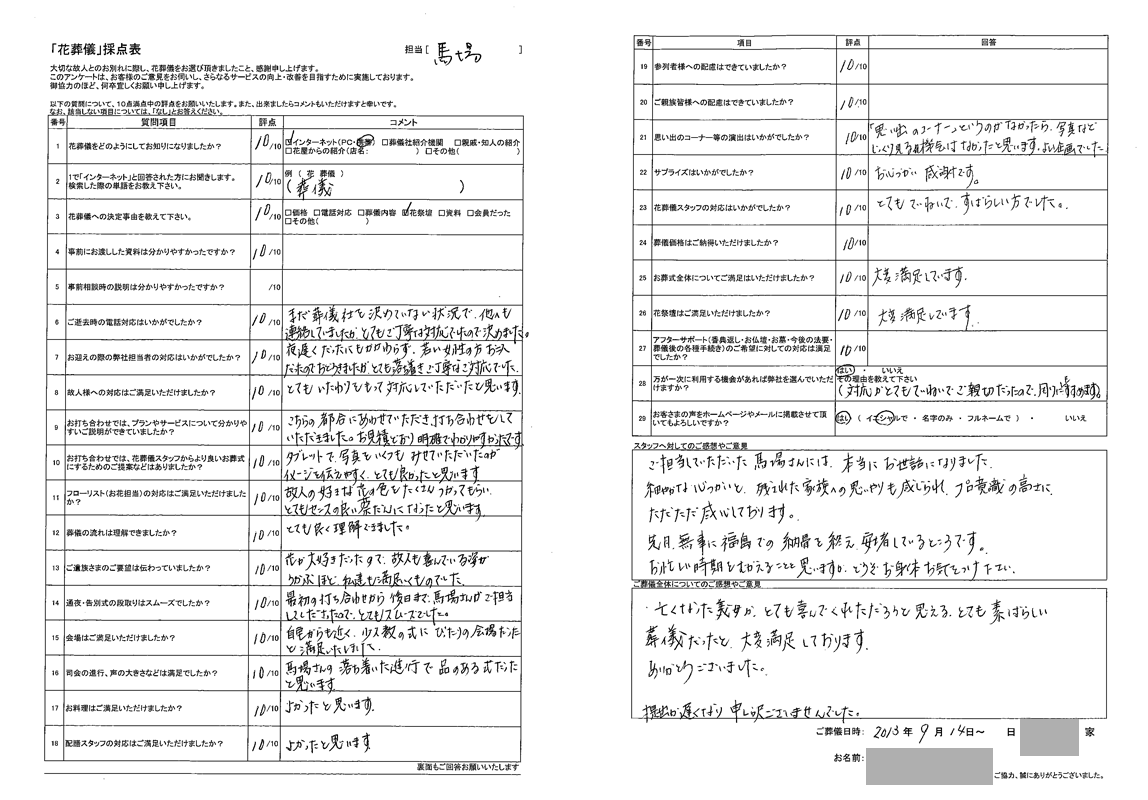 「花葬儀」採点表
担当[ 馬場 ]
大切な故人とのお別れに際し、花葬儀をお選び頂きましたこと、感謝申し上げます。
このアンケートは、お客様のご意見をお伺いし、さらなるサービスの向上・改善を目指すために実施しております。
御協力のほど、何卒宜しくお願い申し上げます。
以下の質問について、10点満点中の評点をお願いいたします。また、出来ましたらコメントもいただけますと幸いです。
なお、該当しない項目については、「なし」とお答えください。
番号 質問項目 評点 コメント
1 花葬儀をどのようにしてお知りになりましたか? 10/10 ☑インターネット(PC・携帯) □葬儀社紹介機関 □親戚・知人の紹介
□花屋からの紹介(店名: ) □その他( )
2 1で「インターネット」と回答された方にお聞きします。
検索した際の単語をお教え下さい。 10/10 例(花葬儀)
(葬儀 )
3 花葬儀への決定事由を教えて下さい。 10/10 □価格 □電話対応 □葬儀内容 ☑花祭壇 □資料 □会員だった
□その他( )
4 事前にお渡しした資料は分かりやすかったですか? 10/10
5 事前相談時の説明は分かりやすかったですか? /10
6 ご逝去時の電話対応はいかがでしたか? 10/10 まだ葬儀社を決めていない状況で、他へも
連絡していましたが、とてもご丁寧な対応でしたので決めました。
7 お迎えの際の弊社担当者の対応はいかがでしたか? 10/10 夜遅くだったにもかかわらず、若い女性の方お2人
だったのでおどろきましたがとても落着きご丁寧なご対応でした。
8 故人様への対応はご満足いただけましたか? 10/10 とてもいたわりをもって対応していただいたと思います。
9 お打ち合わせでは、プランやサービスについて分かりや
すいご説明ができていましたか? 10/10 こちらの都合にあわせていただき、打ち合わせをして
いただきました。お見積どおり明確でわかりやすかったです
10 お打ち合わせでは、花葬儀スタッフからより良いお葬式
にするためのご提案などはありましたか? 10/10 タブレットで、写真をいくつもみせていただいたのが
イメージを伝えやすく、とても良かったと思います
11 フローリスト(お花担当)の対応はご満足いただけました
か? 10/10 故人の好きな花の色をたくさんつかってもらい、
とてもセンスの良い祭だんになったと思います
12 葬儀の流れは理解できましたか? 10/10 とても良く理解できました。
13 ご遺族さまのご要望は伝わっていましたか? 10/10 花が大好きだったので、故人も喜んでいる姿が
うかぶほど、私達も満足いくものでした。
14 通夜・告別式の段取りはスムーズでしたか? 10/10 最初の打ち合わせから後日まで、馬場さんがご担当
して下さったので、とてもスムーズでした。
15 会場はご満足いただけましたか? 10/10 自宅からも近く、少人数の式にぴったりの会場だった
と満足いたしました。
16 司会の進行、声の大きさなどは満足でしたか? 10/10 馬場さんの落ち着いた進行で品のある式だった
と思います。
17 お料理はご満足いただけましたか? 10/10 よかったと思います。
18 配膳スタッフの対応はご満足いただけましたか? 10/10 よかったと思います
裏面もご回答お願いいたします
番号 項目 評点 回答
19 参列者様への配慮はできていましたか? 10/10
20 ご親族皆様への配慮はできていましたか? 10/10
21 思い出のコーナー等の演出はいかがでしたか? 10/10 「思い出のコーナー」というのがなかったら、写真など
じっくり見る機会はなかったと思います。よい企画でした
22 サプライズはいかがでしたか? 10/10 お心づかい感謝です。
23 花葬儀スタッフの対応はいかがでしたか? 10/10 とてもていねいで、すばらしい方でした。
24 葬儀価格はご納得いただけましたか? 10/10
25 お葬式全体についてご満足はいただけましたか? 10/10 大変満足しています。
26 花祭壇はご満足いただけましたか? 10/10 大変満足しています
27 アフターサポート(香典返し・お仏壇・お墓・今後の法要・
葬儀後の各種手続き)のご希望に対しての対応は満足
でしたか? 10/10
28 万が一次に利用する機会があれば弊社を選んでいただ
けますか? はい ・ いいえ
その理由を教えて下さい
(対応がとてもていねいでご親切だったので、周りにも薦めます。)
29 お客さまの声をホームページやメールに掲載させて頂
いてもよろしいですか? はい ( イニシャルで ・ 名字のみ ・ フルネームで ) ・ いいえ
スタッフへ対してのご感想やご意見
ご担当していただいた馬場さんには、本当にお世話になりました。
細やかな心づかいと、残された家族への思いやりも感じられ、プロ意識の高さに
ただただ感心しております。
先月、無事に福島での納骨を終え、安者しているところです。
お忙しい時期をむかえることと思いますが、どうぞお身体お気をつけ下さい。
ご葬儀全体についてのご感想やご意見
亡くなった義母が、とても喜んでくれただろうと思える、とても素ばらしい
葬儀だったと、大変満足しております。
ありがとうございました。
提出が遅くなり申し訳ございませんでした。
ご葬儀日時: 2013年 9月 14日~ 日 家
お名前:
ご協力、誠にありがとうございました。